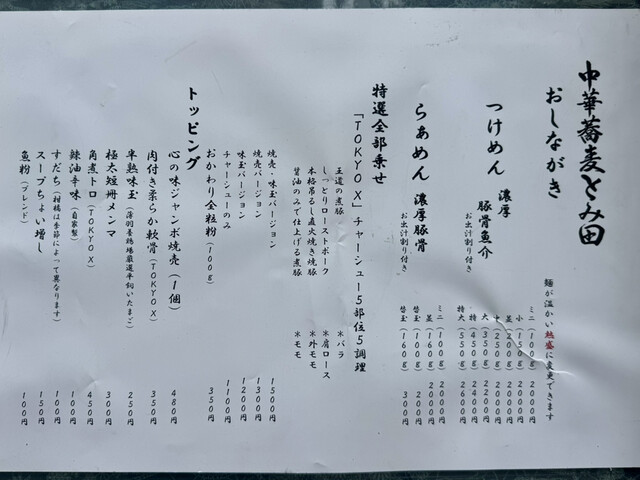 中華蕎麦とみ田
おしながき
麺が温かい熱盛に変更できます
つけめん 濃厚豚骨魚介
お出汁割り付き
ミニ(100g) 2000円
小(150g) 2000円
並(200g) 2000円
中(250g) 2000円
大(350g) 2200円
特(450g) 2400円
特大(550g) 2600円
らぁめん 濃厚豚骨
お出汁割り付き
ミニ(100g) 2000円
並(160g) 2000円
替玉(100g) 200円
替玉(160g) 300円
特選全部乗せ
「TOKYO X」チャーシュー5部位5調理
王道の煮豚 *バラ
しっとりローストポーク *肩ロース
本格吊るし直火焼き焼豚 *外モモ
醤油のみで仕上げる煮豚 *モモ
焼売・味玉バージョン 1500円
焼売バージョン 1300円
味玉バージョン 1200円
チャーシューのみ 1100円
トッピング
おかわり全粒粉(100g) 350円
心の味ジャンボ焼売(1個) 480円
肉付き柔らか軟骨(TOKYO X) 350円
半熟味玉(蒲羽養鶏場厳選平飼いたまご) 250円
極太短冊メンマ 300円
角煮トロ(TOKYO X) 450円
辣油辛味(自家製) 100円
すだち(柑橘は季節によって異なります) 100円
スープちょい増し 150円
魚粉(ブレンド) 100円